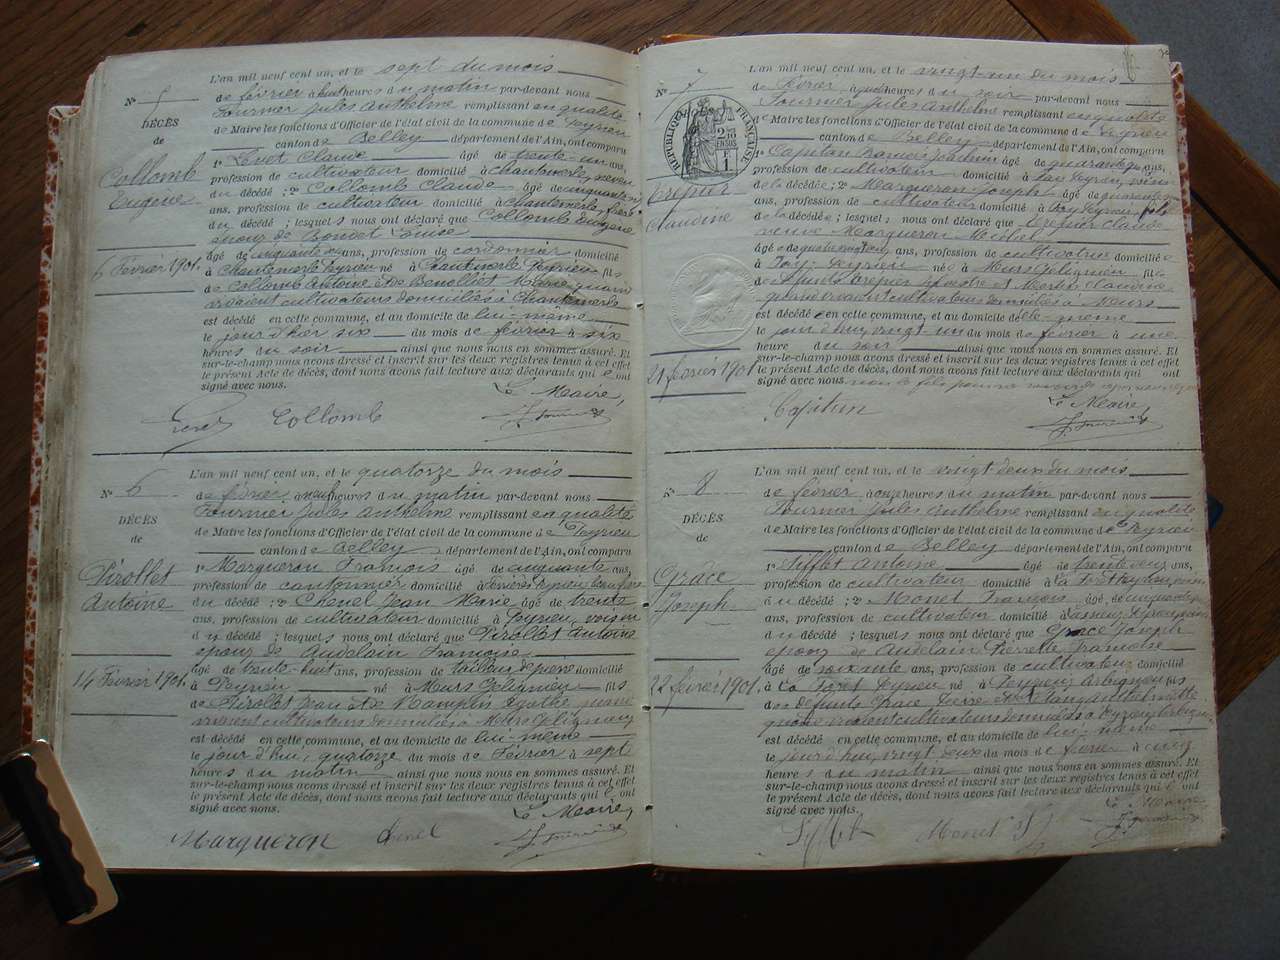 L'an mil neuf cent un, et le sept du mois
N° 5
de février à heures du matin par-devant nous
DÉCÈS
Fournier Jules Anthelme remplissant en qualité
de
de Maire les fonctions d'Officier de l'état civil de la commune de Peyrieu
canton de Belley département de l'Ain, ont comparu
1° Levet Claude âgé de trente-un ans,
Collomb
profession de cultivateur domicilié à Chantemerle,
Eugène
du décédé ; 2° Collomb Claude âgé de
ans, profession de cultivateur domicilié à Chantemerle, frère
du décédé ; lesquels nous ont déclaré que Collomb Eugène
époux de Bondet Louise
6 Février 1901
âgé de cinquante ans, profession de cordonnier domicilié
à Chantemerle Peyrieu né à Chantemerle Peyrieu fils
de Collomb Antoine et de Benollier Marie quand
vivaient cultivateurs domiciliés à Chantemerle
est décédé en cette commune, et au domicile de lui-même
le jour d'hier six du mois de février à six
heures du soir ainsi que nous nous en sommes assuré. Et
sur-le-champ nous avons dressé et inscrit sur les deux registres tenus à cet effet
le présent Acte de décès, dont nous avons fait lecture aux déclarants qui ont
signé avec nous.
Le Maire,
Levet Collomb J. Fournier
L'an mil neuf cent un, et le quatorze du mois
N° 6
de février à neuf heures du matin par-devant nous
DÉCÈS
Fournier Jules Anthelme remplissant en qualité
de
de Maire les fonctions d'Officier de l'état civil de la commune de Peyrieu
canton de Belley département de l'Ain, ont comparu
Pirollet
1° Marqueron François âgé de cinquante ans,
Antoine
profession de cantonnier domicilié à Peyrieu
du décédé ; 2° Chenel Jean Marie âgé de trente
ans, profession de cultivateur domicilié à Peyrieu, voisin
du décédé ; lesquels nous ont déclaré que Pirollet Antoine
époux de Audelain Françoise
14 Février 1901
âgé de trente-huit ans, profession de tailleur de pierre domicilié
à Peyrieu né à Meurs Gélignieux fils
de Pirollet Jean et de Agathe quand
vivaient cultivateurs domiciliés à Meurs Gélignieux
est décédé en cette commune, et au domicile de lui-même
le jour d'hui, quatorze du mois de Février à sept
heures du matin ainsi que nous nous en sommes assuré. Et
sur-le-champ nous avons dressé et inscrit sur les deux registres tenus à cet effet
le présent Acte de décès, dont nous avons fait lecture aux déclarants qui ont
signé avec nous.
Le Maire,
Marqueron Chenel J. Fournier
L'an mil neuf cent un, et le vingt-un du mois
N° 7
de Février à heures du soir par-devant nous
Fournier Jules Anthelme remplissant en qualité
RÉPUBLIQUE FRANÇAISE
de Maire les fonctions d'Officier de l'état civil de la commune de Peyrieu
canton de Belley département de l'Ain, ont comparu
1° Capitan Francis Joachim âgé de quarante ans,
profession de cultivateur domicilié à Peyrieu, voisin
Crépier
de la décédée ; 2° Marqueron Joseph âgé de
Claudine
ans, profession de cultivateur domicilié à Peyrieu, fils
de la décédée ; lesquels nous ont déclaré que Crépier Claude
veuve Marqueron Michel
âgée de ans, profession de cultivatrice domiciliée
à Peyrieu née à Meurs Gélignieux fille
de défunts Crépier Sylvestre et Claudine
quand vivaient cultivateurs domiciliés à Meurs
est décédée en cette commune, et au domicile de elle-même
le jour d'hui, vingt-un du mois de février à une
heure du soir ainsi que nous nous en sommes assuré. Et
21 février 1901
sur-le-champ nous avons dressé et inscrit sur les deux registres tenus à cet effet
le présent Acte de décès, dont nous avons fait lecture aux déclarants qui ont
signé avec nous.
Le Maire,
Capitan J. Fournier
L'an mil neuf cent un, et le vingt deux du mois
N° 8
de février à onze heures du matin par-devant nous
DÉCÈS
Fournier Jules Anthelme remplissant en qualité
de
de Maire les fonctions d'Officier de l'état civil de la commune de Peyrieu
canton de Belley département de l'Ain, ont comparu
Grâce
1° Sifflet Antoine âgé de trente deux ans,
Joseph
profession de cultivateur domicilié à La Forêt Peyrieu, voisin
du décédé ; 2° Monet François âgé de
ans, profession de cultivateur domicilié à
du décédé ; lesquels nous ont déclaré que Grâce Joseph
époux de Audelain Pierrette Françoise
22 février 1901
âgé de soixante ans, profession de cultivateur domicilié
à La Forêt Peyrieu né à Peyzieu Arbignieu fils
des défunts Grâce et
quand vivaient cultivateurs domiciliés à Peyzieu Arbignieu
est décédé en cette commune, et au domicile de lui-même
le jour d'hui, vingt deux du mois de février à cinq
heures du matin ainsi que nous nous en sommes assuré. Et
sur-le-champ nous avons dressé et inscrit sur les deux registres tenus à cet effet
le présent Acte de décès, dont nous avons fait lecture aux déclarants qui ont
signé avec nous.
Le Maire
Sifflet Monet J. Fournier